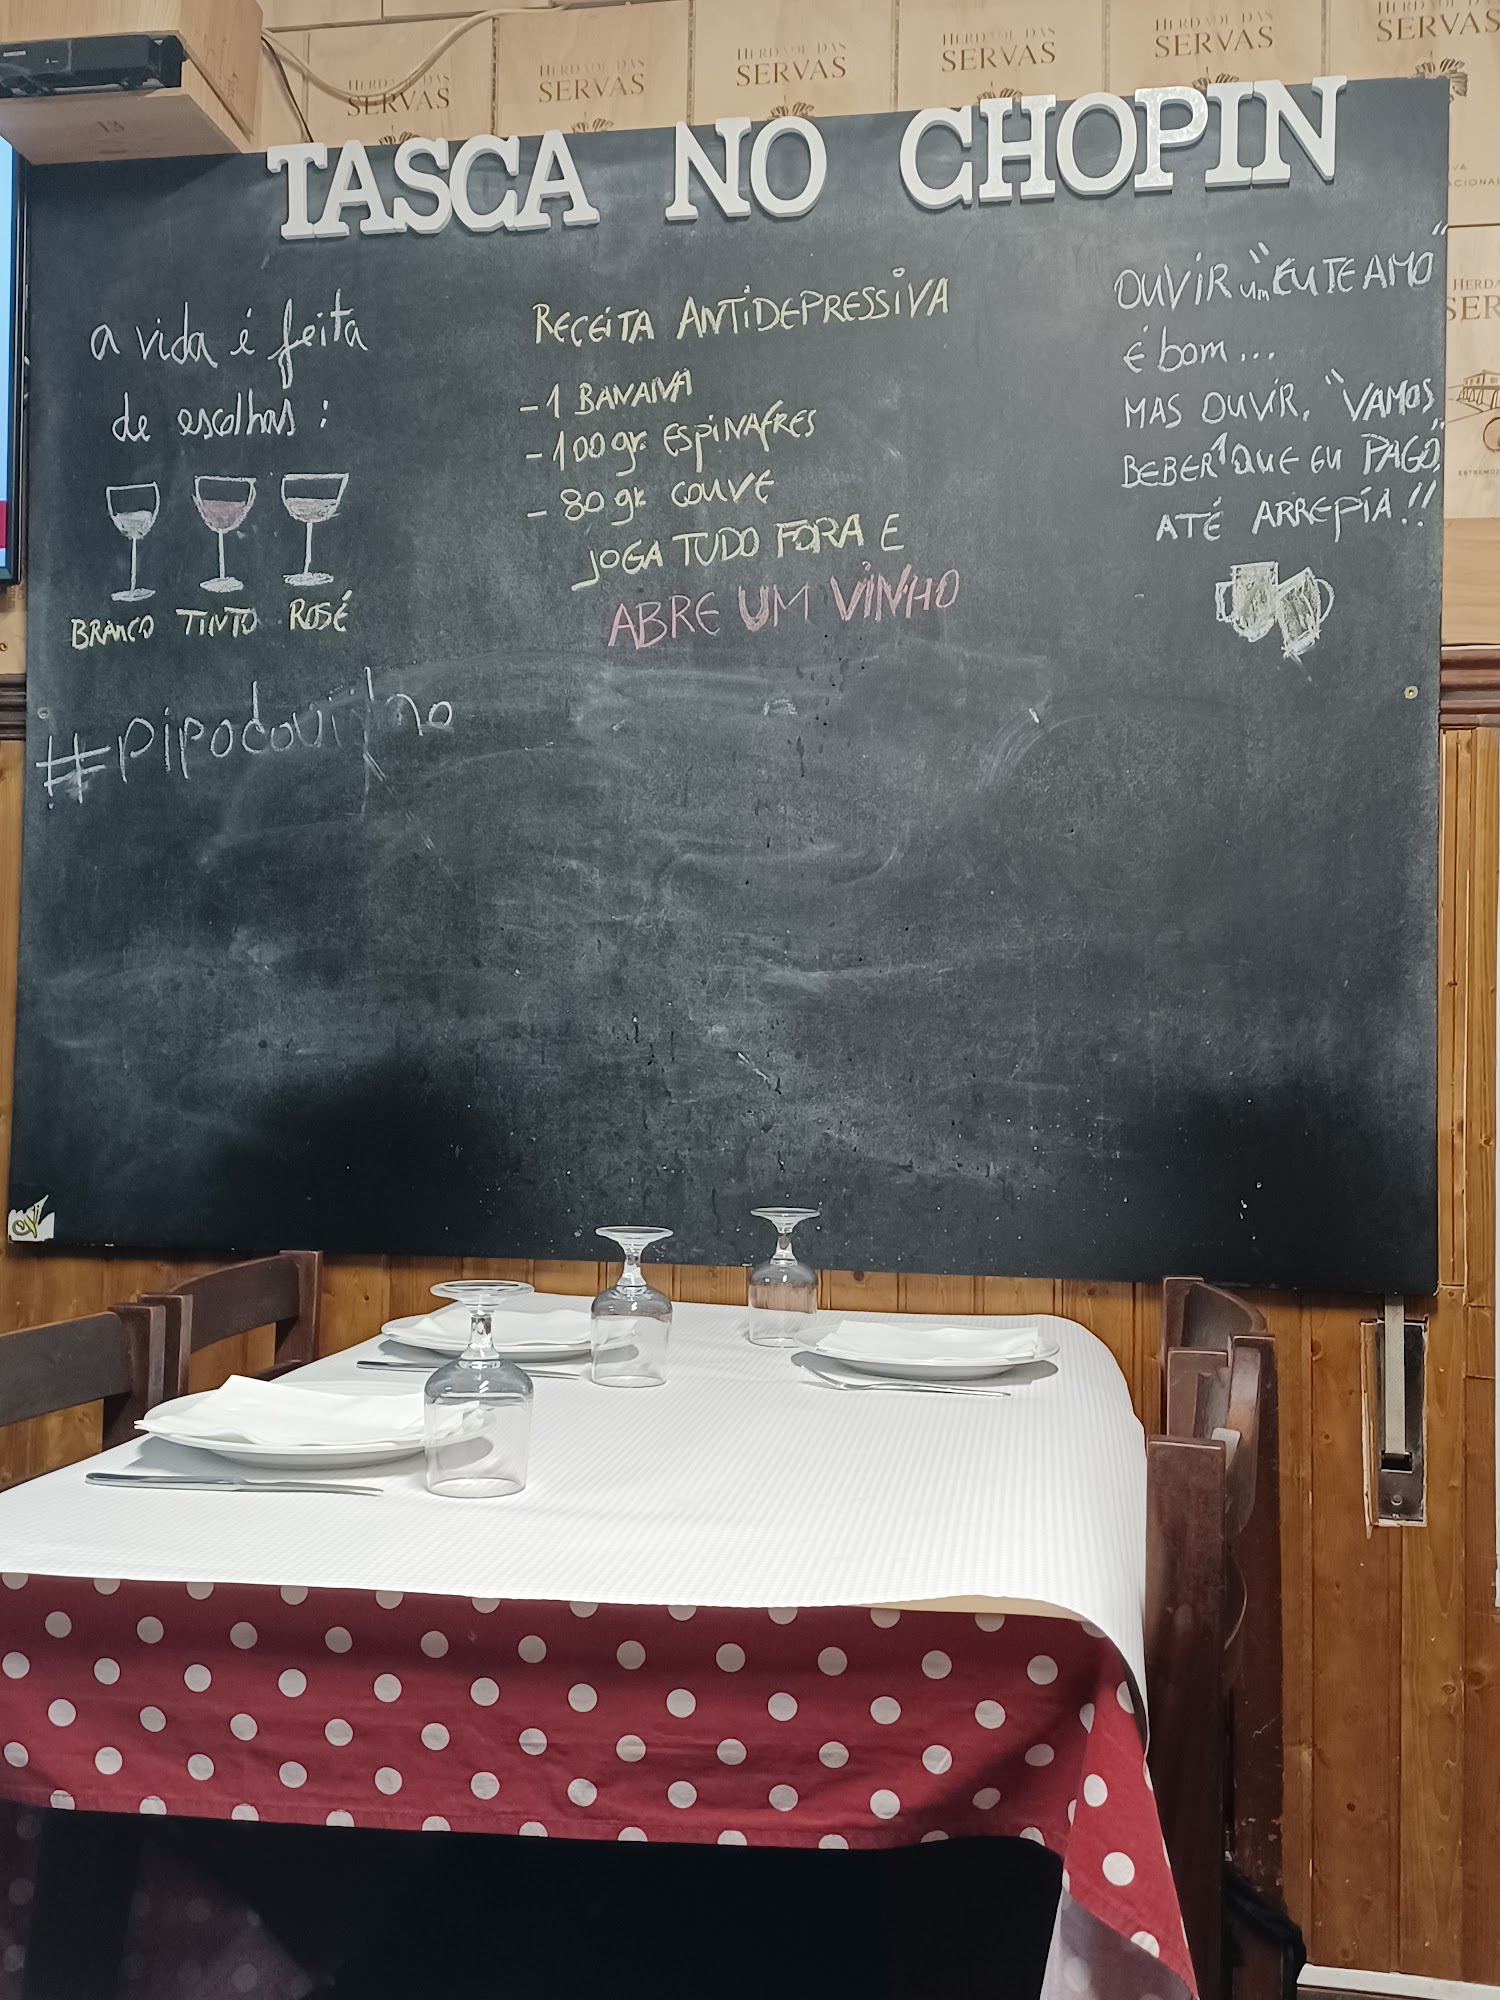 HERDADE DAS
SERVAS
HERDADE DAS
SERVAS
HERDADE DAS
SERVAS
HERDADE DAS
SERVAS
HERDADE DAS
SERVAS
HERDADE DAS
SERVAS
SAMSUNG
13
TASCA NO CHOPIN
a vida é feita
de escolhas:
BRANCO TINTO ROSÉ
#pipodovinho
RECEITA ANTIDEPRESSIVA
- 1 BANANA
- 100gr. ESPINAFRES
- 80gr. COUVE
JOGA TUDO FORA E
ABRE UM VINHO
OUVIR um "EU TE AMO"
É bom...
MAS OUVIR, "VAMOS
BEBER QUE EU PAGO"
ATÉ ARREPIA!!